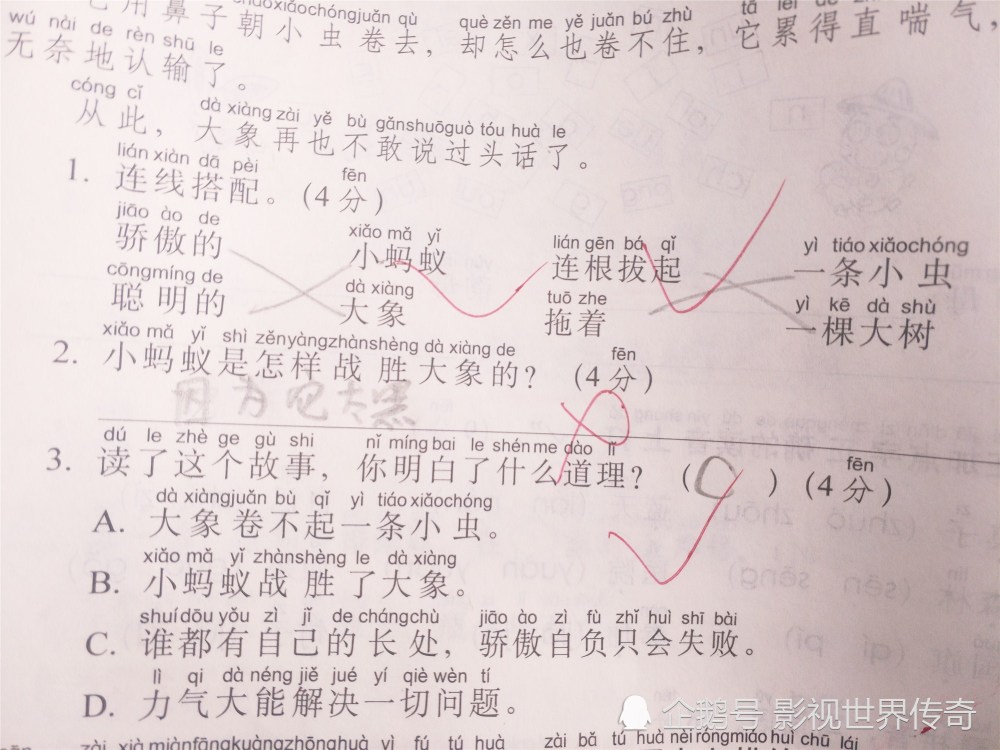 它用鼻子朝小虫卷去，却怎么也卷不住，它累得直喘气，
wú nài de rèn shū le
无奈地认输了。
cóng cǐ dà xiàng zài yě bù gǎn shuō guò tóu huà le
从此，大象再也不敢说过头话了。
lián xiàn dā pèi fēn
1. 连线搭配。(4分)
jiāo ào de xiǎo mǎ yǐ lián gēn bá qǐ yì tiáo xiǎo chóng
骄傲的 小蚂蚁 连根拔起 一条小虫
cōng míng de dà xiàng tuō zhe yì kē dà shù
聪明的 大象 拖着 一棵大树
xiǎo mǎ yǐ shì zěn yàng zhàn shèng dà xiàng de fēn
2. 小蚂蚁是怎样战胜大象的？(4分)
dú le zhè ge gù shi nǐ míng bai le shén me dào lǐ fēn
3. 读了这个故事，你明白了什么道理？(C)(4分)
dà xiàng juǎn bù qǐ yì tiáo xiǎo chóng
A. 大象卷不起一条小虫。
xiǎo mǎ yǐ zhàn shèng le dà xiàng
B. 小蚂蚁战胜了大象。
shuí dōu yǒu zì jǐ de cháng chù jiāo ào zì fù zhǐ huì shī bài
C. 谁都有自己的长处，骄傲自负只会失败。
lì qi dà néng jiě jué yí qiè wèn tí
D. 力气大能解决一切问题。
企鹅号 影视世界传奇